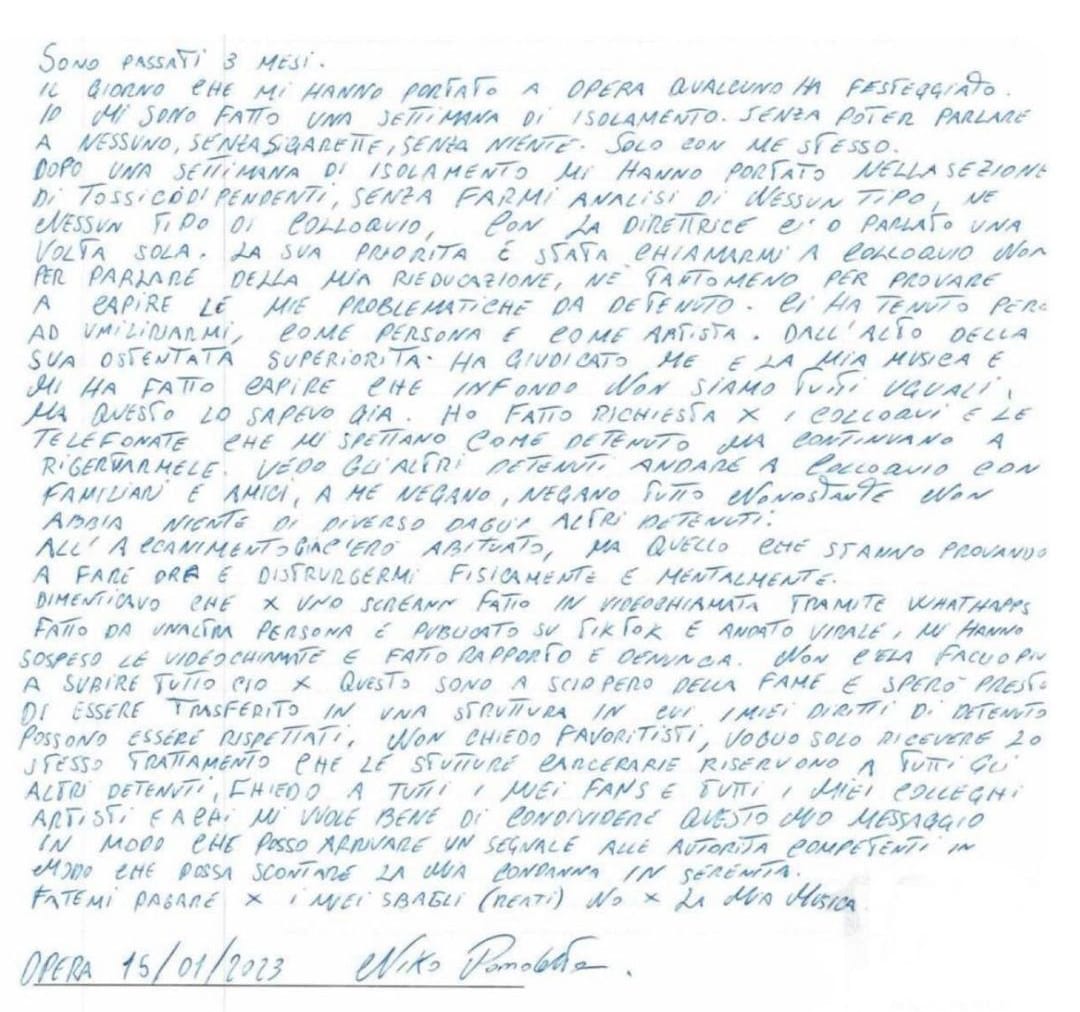 SONO PASSATI 3 MESI.
IL GIORNO CHE MI HANNO PORTATO A OPERA QUALCUNO HA FESTEGGIATO.
IO MI SONO FATTO UNA SETTIMANA DI ISOLAMENTO. SENZA POTER PARLARE
A NESSUNO, SENZA SIGARETTE, SENZA NIENTE. SOLO CON ME STESSO.
DOPO UNA SETTIMANA DI ISOLAMENTO MI HANNO PORTATO NELLA SEZIONE
DI TOSSICODIPENDENTI, SENZA FARMI ANALISI DI NESSUN TIPO, NE
NESSUN TIPO DI COLLOQUIO, CON LA DIRETTRICE CI O PARLATO UNA
VOLTA SOLA. LA SUA PRIORITA É STATA CHIAMARMI A COLLOQUIO NON
PER PARLARE DELLA MIA RIEDUCAZIONE, NE TANTOMENO PER PROVARE
A CAPIRE LE MIE PROBLEMATICHE DA DETENUTO. CI HA TENUTO PERO
AD UMILINIARMI, COME PERSONA E COME ARTISTA. DALL'ALTO DELLA
SUA OSTENTATA SUPERIORITA. HA GIUDICATO ME E LA MIA MUSICA E
MI HA FATTO CAPIRE CHE INFONDO NON SIAMO TUTTI UGUALI,
MA QUESTO LO SAPEVO GIA. HO FATTO RICHIESTA X I COLLOQUI E LE
TELEFONATE CHE MI SPETTANO COME DETENUTO MA CONTINUANO A
RIGERTARMELE. VEDO GLI ALTRI DETENUTI ANDARE A COLLOQUIO CON
FAMILIARI E AMICI, A ME NEGANO, NEGANO TUTTO NONOSTANTE NON
ABBIA NIENTE DI DIVERSO DAGLI ALTRI DETENUTI.
ALL'ACCANIMENTO GIA C'ERO ABITUATO, MA QUELLO CHE STANNO PROVANDO
A FARE ORA E DISTRURGERMI FISICAMENTE E MENTALMENTE.
DIMENTICAVO CHE X UNO SCREANN FATTO IN VIDEOCHIAMATA TRAMITE WHATHAPPS
FATTO DA UNALTRA PERSONA É PUBLICATO SU TIKTOK E ANDATO VIRALE, MI HANNO
SOSPESO LE VIDEOCHIAMATE E FATTO RAPPORTO E DENUNCIA. NON CELA FACCIO PIU
A SUBIRE TUTTO CIO X QUESTO SONO A SCIOPERO DELLA FAME E SPERO PRESTO
DI ESSERE TRASFERITO IN UNA STRUTTURA IN CUI I MIEI DIRITTI DI DETENUTO
POSSONO ESSERE RISPETTATI, NON CHIEDO FAVORITISTI, VOGLIO SOLO RICEVERE LO
STESSO TRATTAMENTO CHE LE STUTTURE CARCERARIE RISERVONO A TUTTI GLI
ALTRI DETENUTI, CHIEDO A TUTTI I MIEI FANS E TUTTI I MIEI COLLEGHI
ARTISTI E A CHI MI VUOLE BENE DI CONDIVIDERE QUESTO MIO MESSAGGIO
IN MODO CHE POSSO ARRIVARE UN SEGNALE ALLE AUTORITA COMPETENTI IN
MODO CHE POSSA SCONTARE LA MIA CONDANNA IN SERENITA.
FATEMI PAGARE X I MIEI SBAGLI (REATI) NO X LA MIA MUSICA
OPERA 15/01/2023 Niko Pandetta.